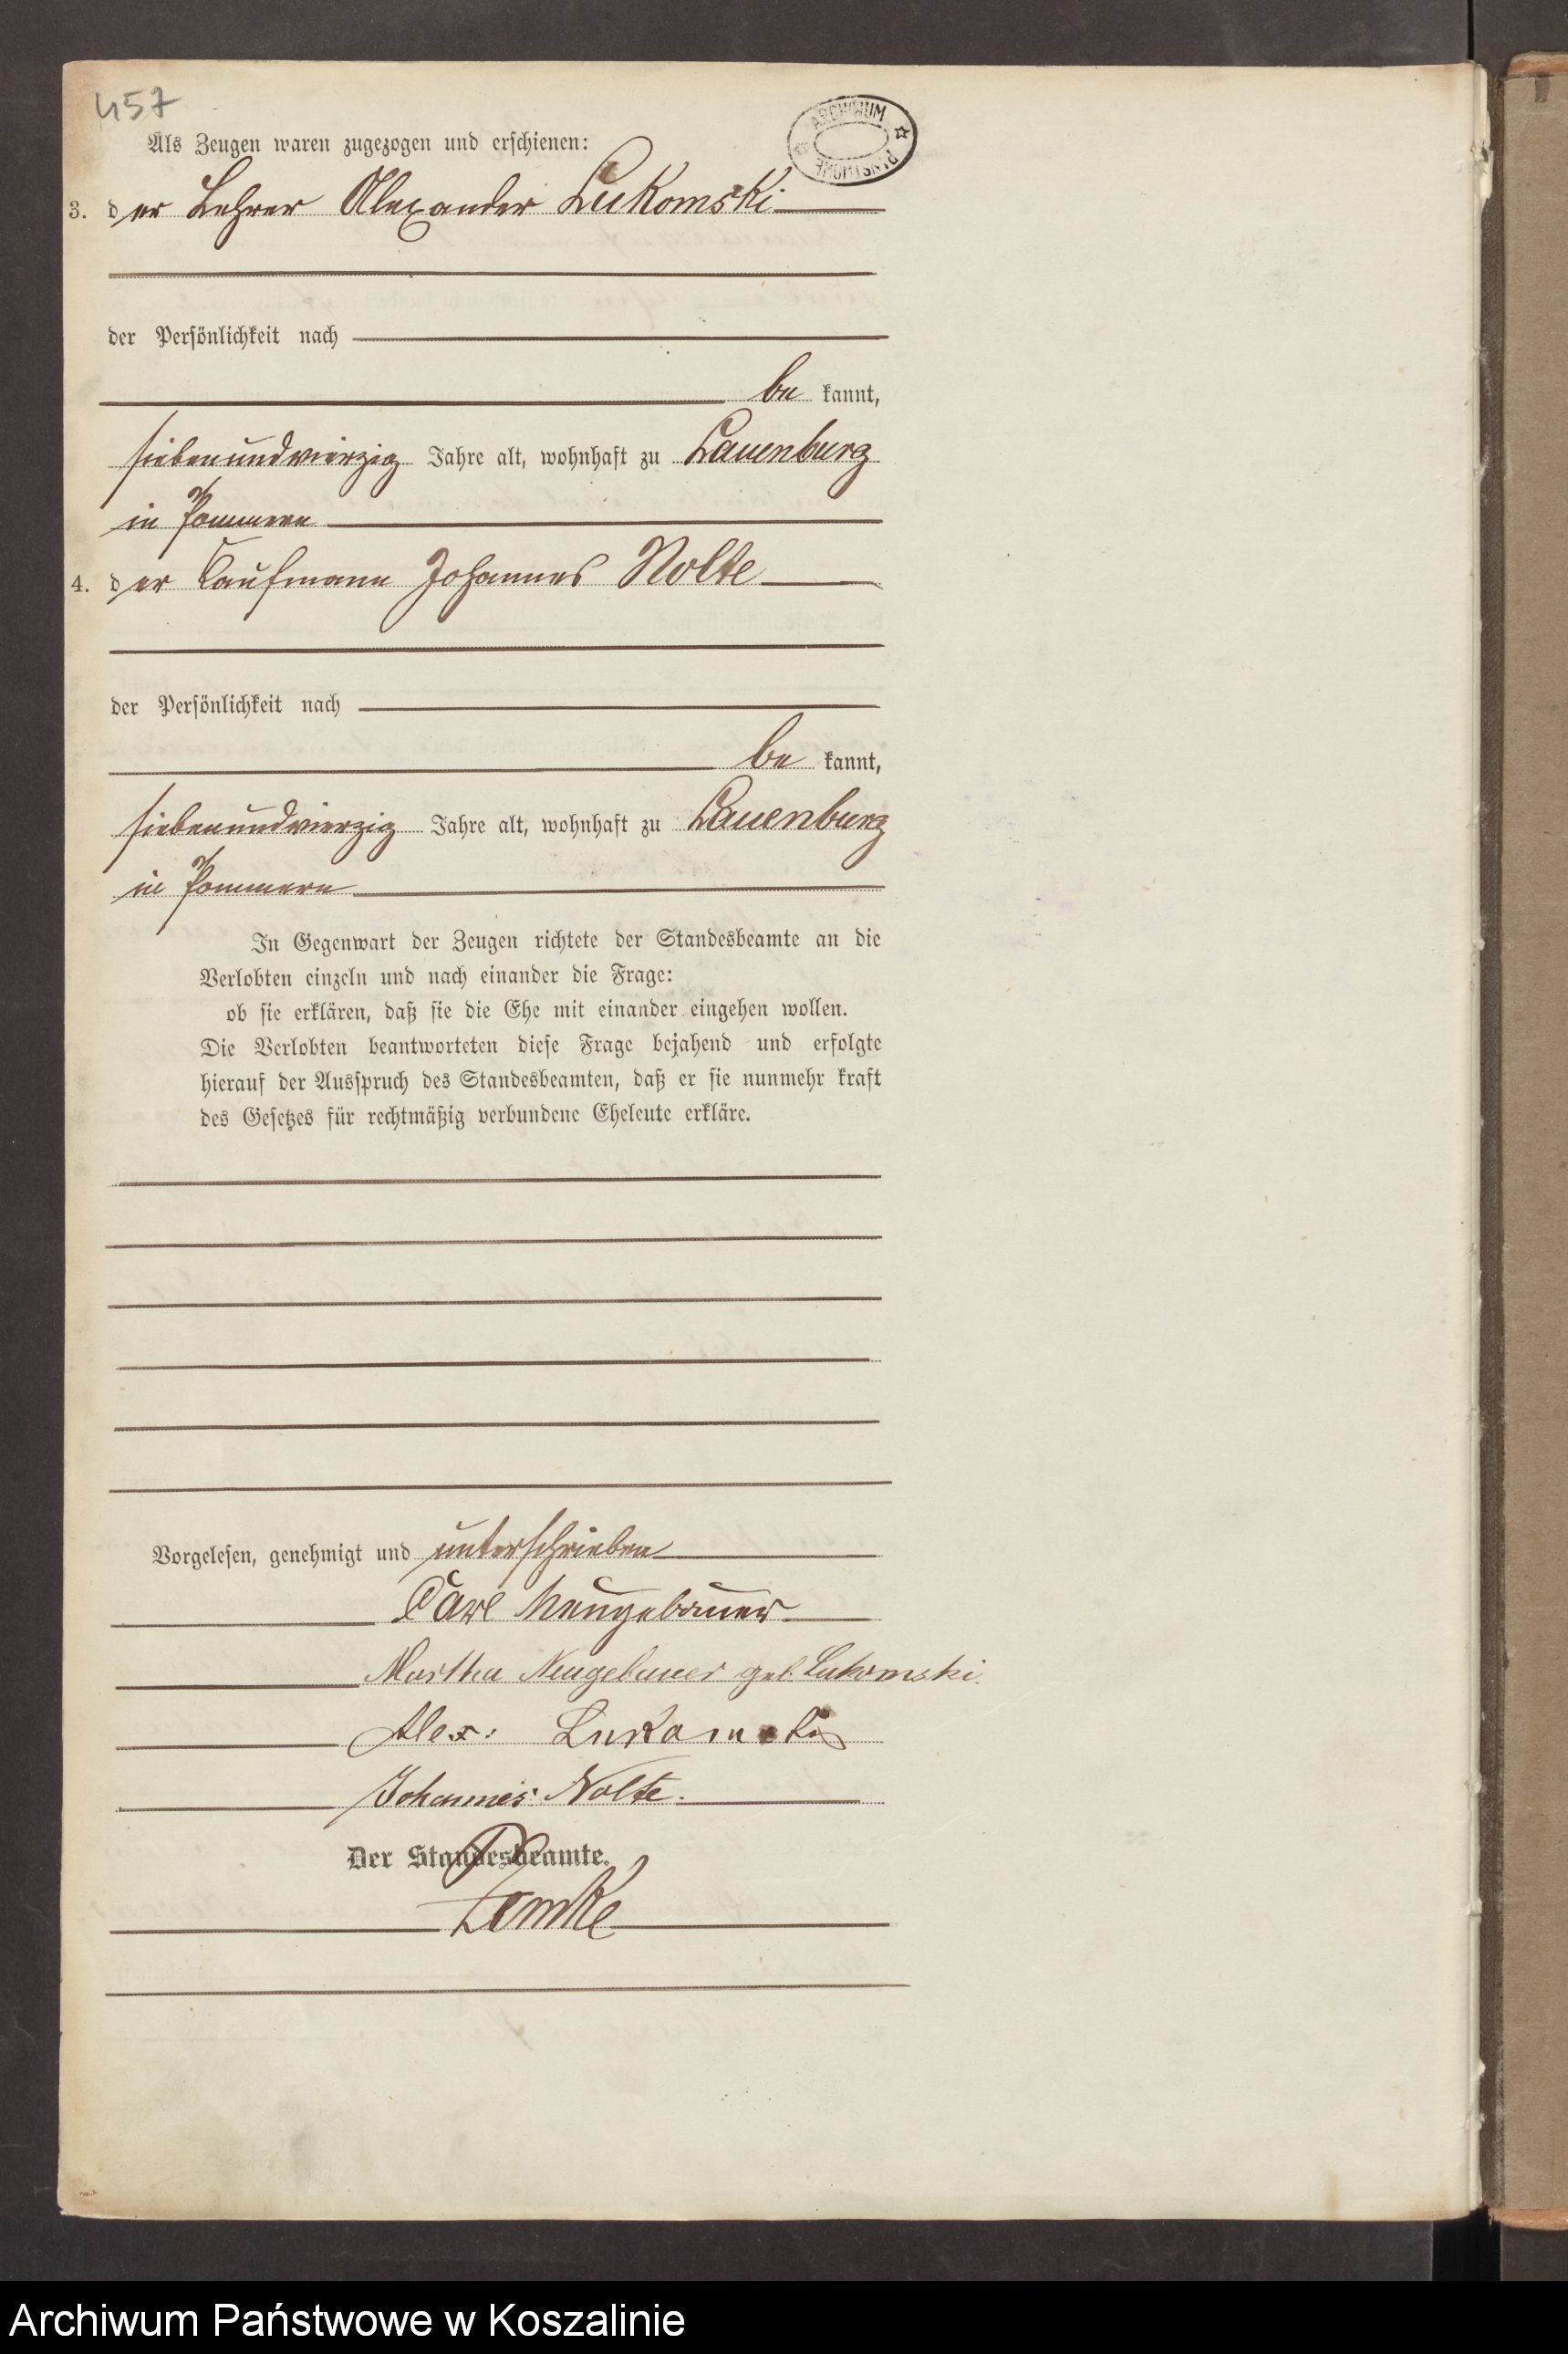 457
ARCHIWUM PAŃSTWOWE
Als Zeugen waren zugezogen und erschienen:
3. der Lehrer Alexander Lukomski
der Persönlichkeit nach
be kannt,
siebenundvierzig Jahre alt, wohnhaft zu Lauenburg
in Pommern
4. der Kaufmann Johannes Nolte
der Persönlichkeit nach
be kannt,
siebenundvierzig Jahre alt, wohnhaft zu Lauenburg
in Pommern
In Gegenwart der Zeugen richtete der Standesbeamte an die
Verlobten einzeln und nach einander die Frage:
ob sie erklären, daß sie die Ehe mit einander eingehen wollen.
Die Verlobten beantworteten diese Frage bejahend und erfolgte
hierauf der Ausspruch des Standesbeamten, daß er sie nunmehr kraft
des Gesetzes für rechtmäßig verbundene Eheleute erkläre.
Vorgelesen, genehmigt und unterschrieben
Carl Neugebauer
Martha Neugebauer geb. Lukomski.
Alex: Lukomski
Johannes Nolte.
Der Standesbeamte.
Lemke
Archiwum Państwowe w Koszalinie